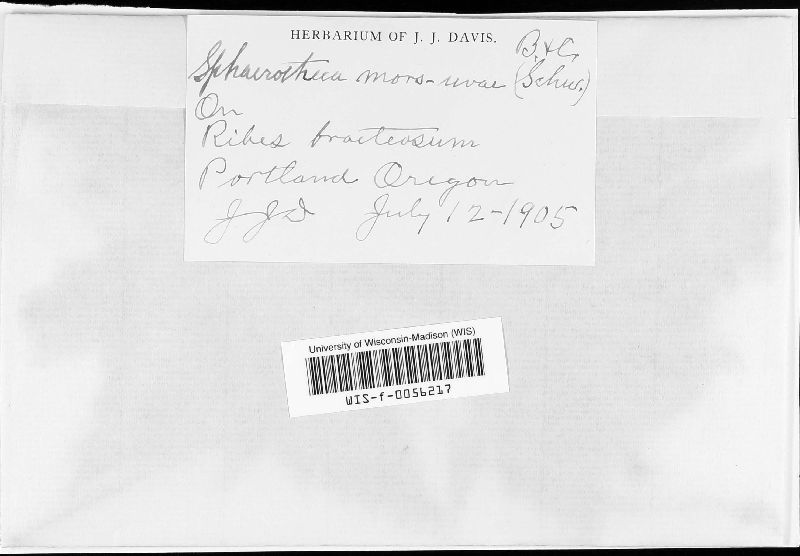 HERBARIUM OF J. J. DAVIS.
Sphaerotheca mors-uvae (Schw.) B. & C.
On
Ribes bracteosum
Portland Oregon
JJD July 12-1905
University of Wisconsin-Madison (WIS)
WIS-f-0056217